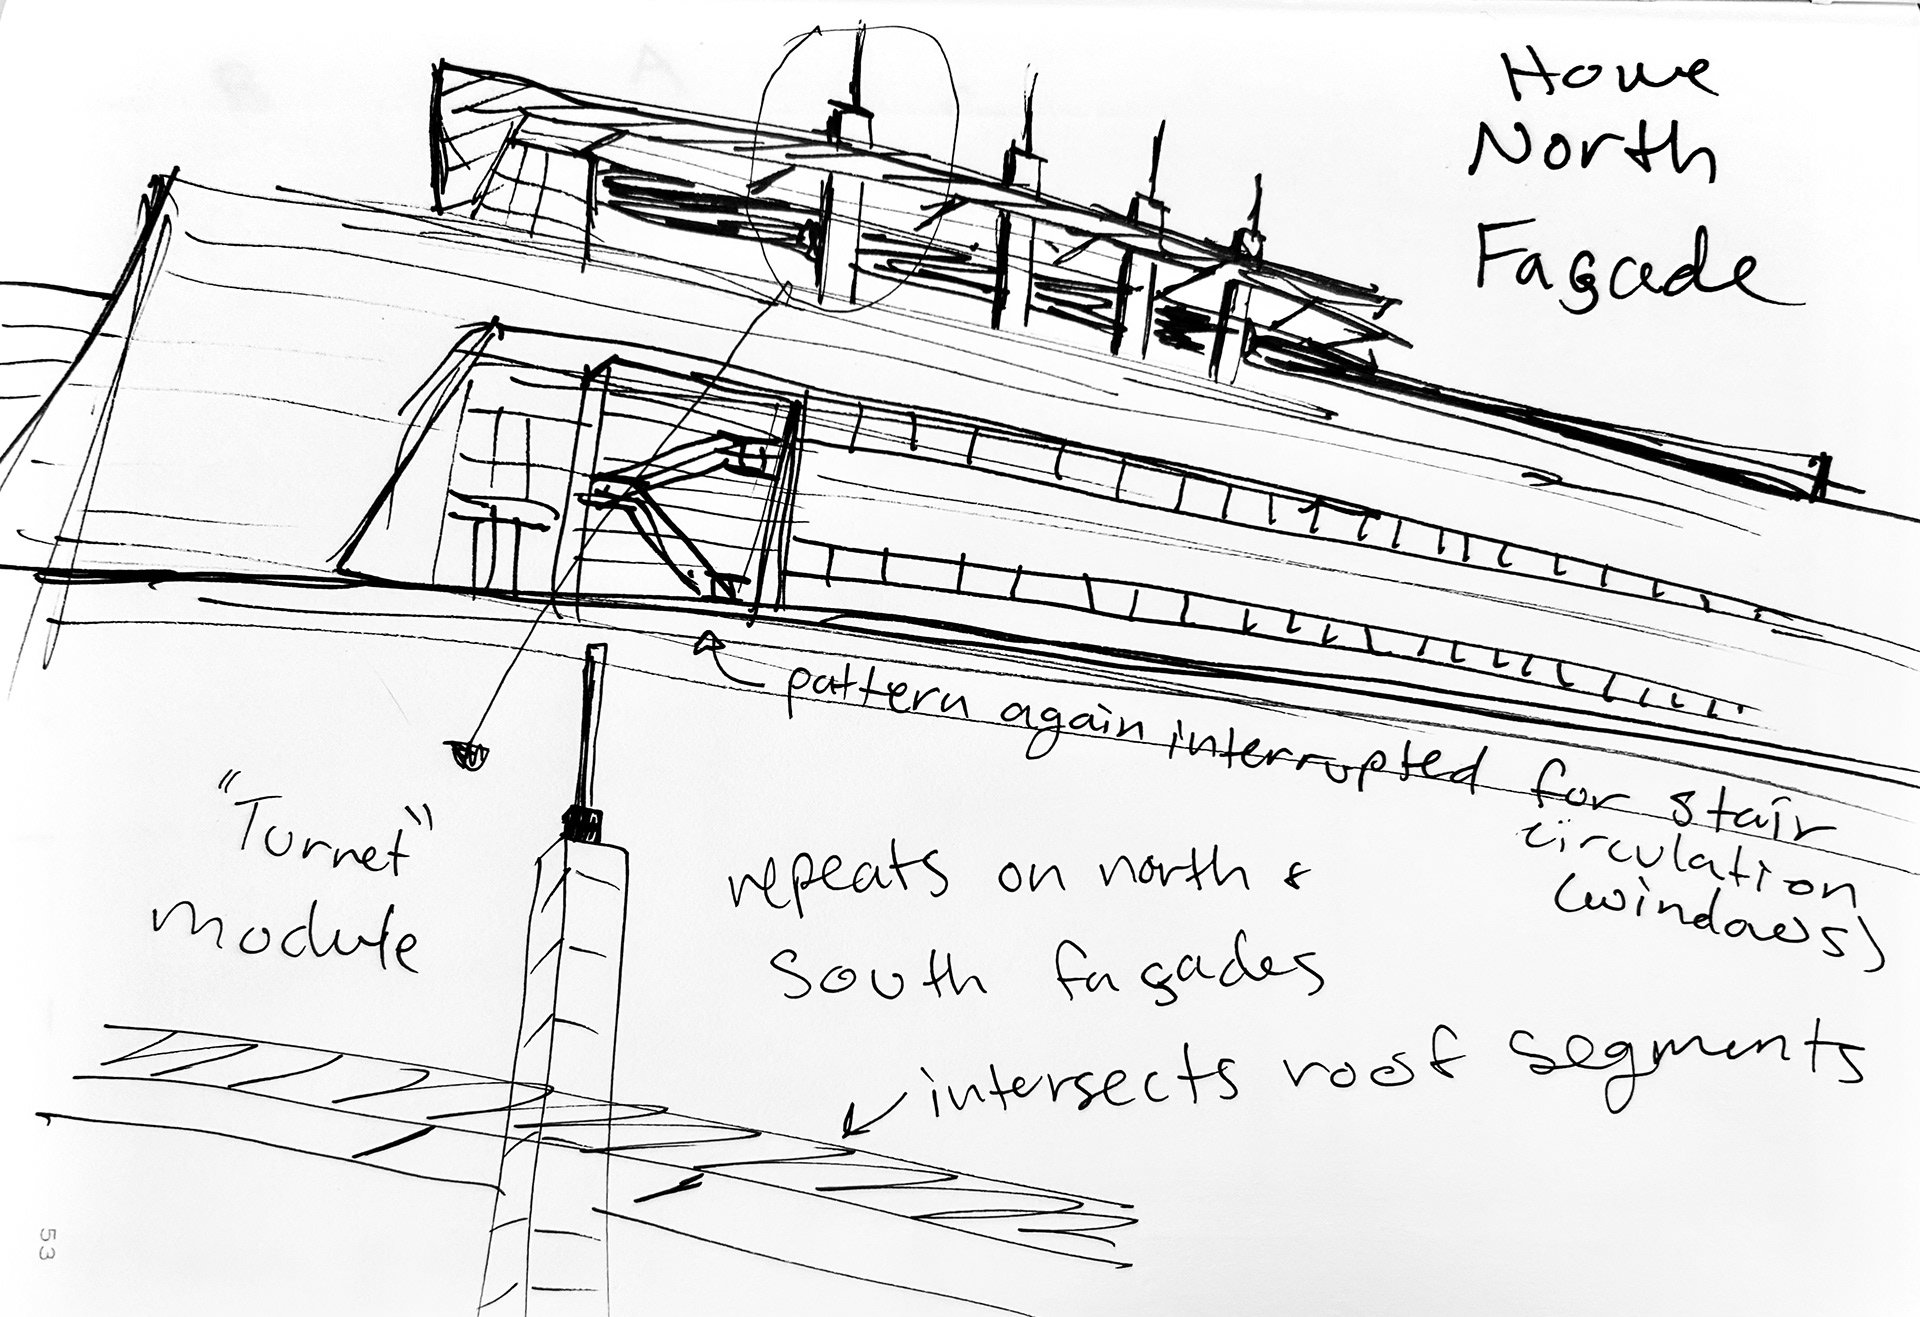 North
Façade
pattern again interrupted for stair
circulation
(windows)
"Turret"
module
repeats on north &
south façades
intersects roof segments
53